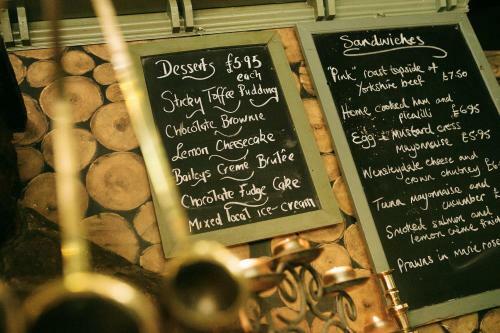 Desserts £5.95
each
Sticky Toffee Pudding
Chocolate Brownie
Lemon Cheesecake
Baileys Creme Brulée
Chocolate Fudge Cake
Mixed local ice-cream
Sandwiches
"Pink" roast topside of
Yorkshire beef £7.50
Home cooked ham and
picalilli £6.95
Egg + Mustard cress
Mayonnaise £5.95
Wensleydale cheese and
crown chutney
Tuna mayonnaise and
cucumber
Smoked salmon and
lemon crème fraiche
Prawns in marie rose